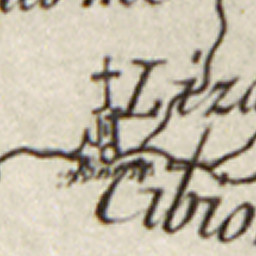 Liza
Cibio